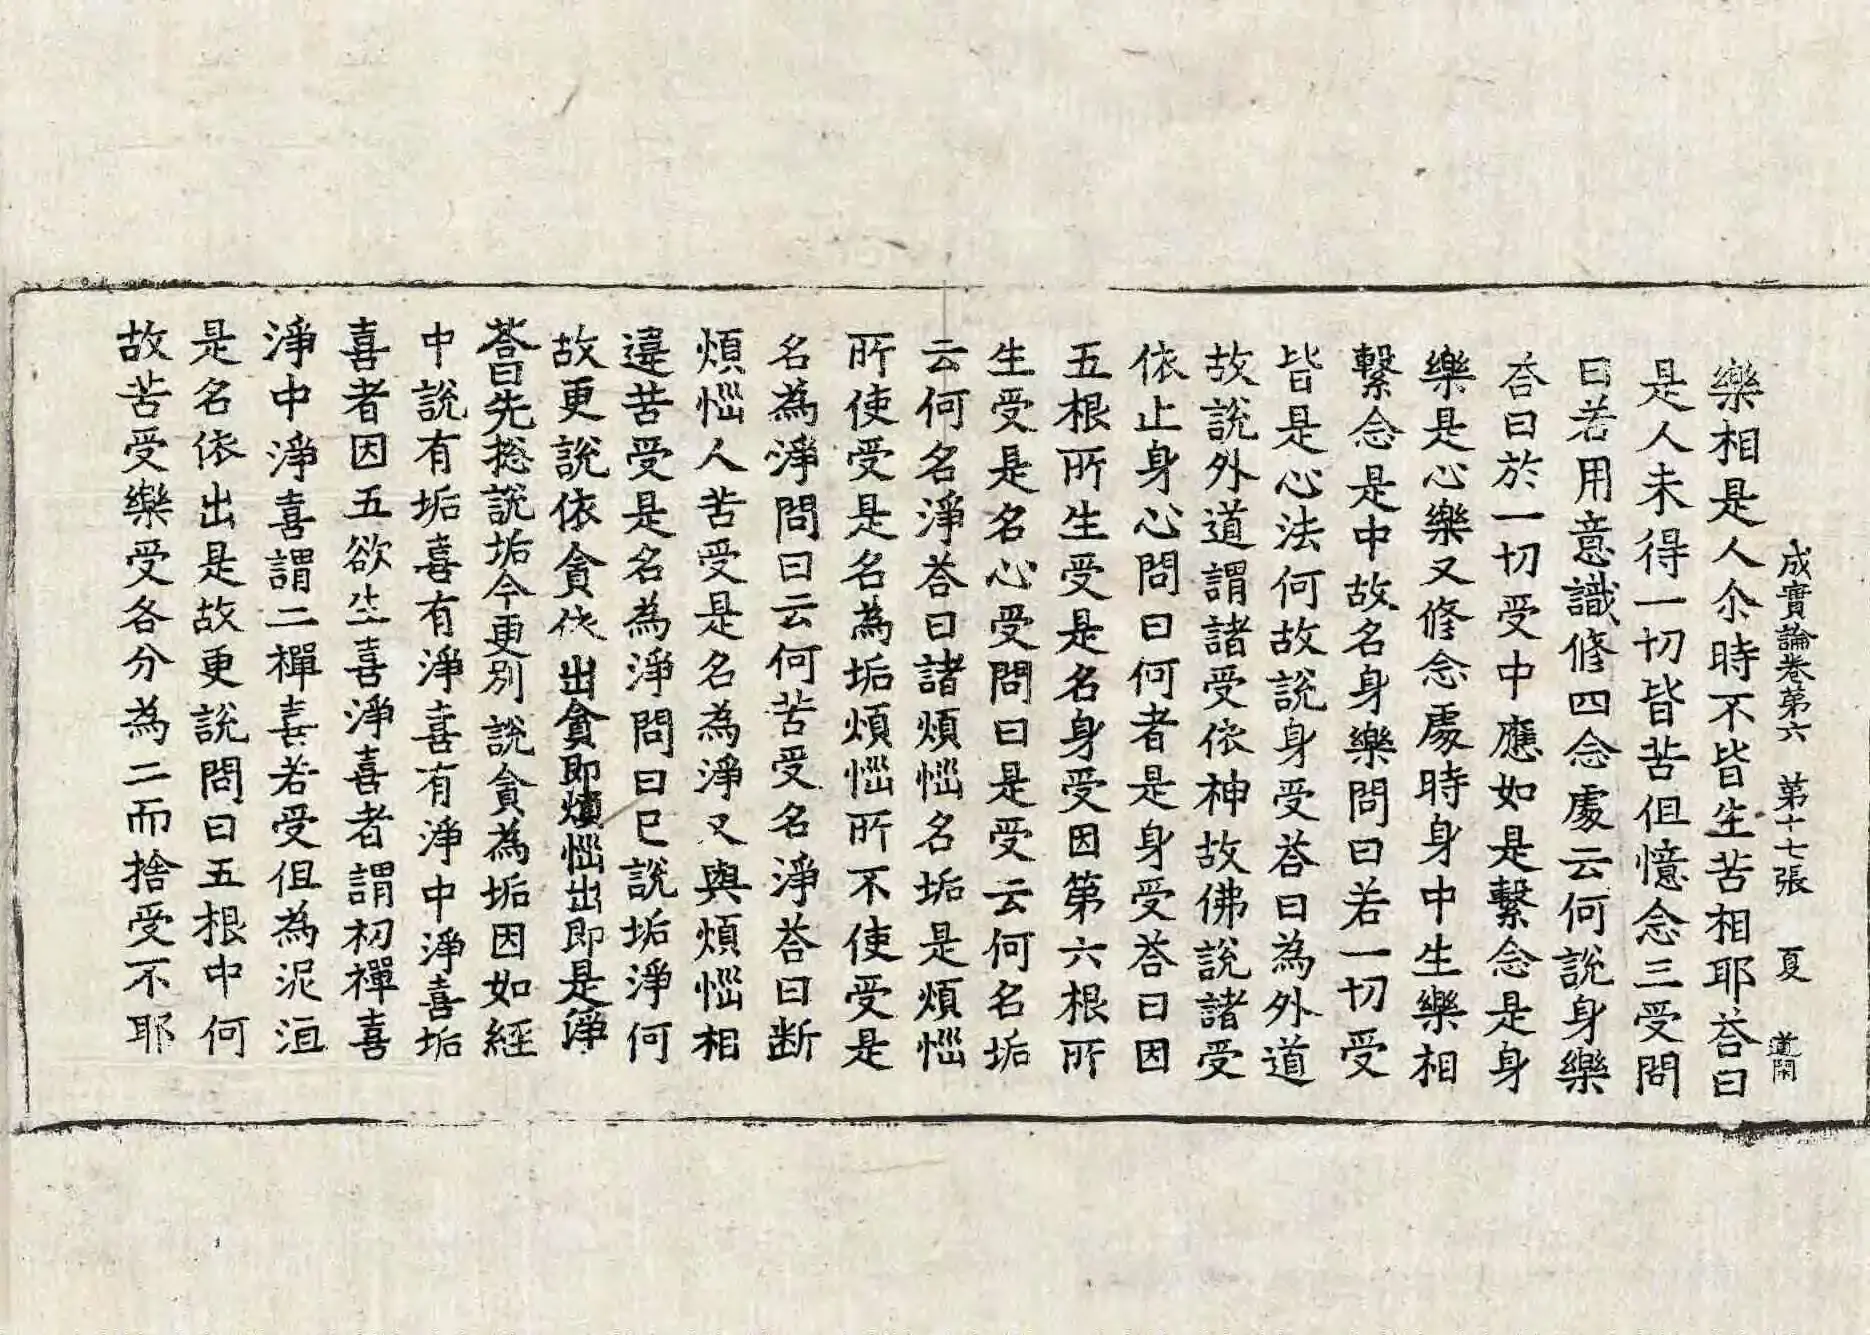 成實論卷第六 第十七張 夏 道閑
樂相是人尒時不皆生苦相耶荅曰
是人未得一切皆苦但憶念三受問
曰若用意識修四念處云何說身樂
荅曰於一切受中應如是繫念是身
樂是心樂又修念處時身中生樂相
繫念是中故名身樂問曰若一切受
皆是心法何故說身受荅曰為外道
故說外道謂諸受依神故佛說諸受
依止身心問曰何者是身受荅曰因
五根所生受是名身受因第六根所
生受是名心受問曰是受云何名垢
云何名淨荅曰諸煩惱名垢是煩惱
所使受是名為垢煩惱所不使受是
名為淨問曰云何苦受名淨荅曰断
煩惱人苦受是名為淨又與煩惱相
違苦受是名為淨問曰已說垢淨何
故更說依貪依出貪即煩惱出即是淨
荅曰先捴說垢今更別說貪為垢因如經
中說有垢喜有淨喜有淨中淨喜垢
喜者因五欲生喜淨喜者謂初禪喜
淨中淨喜謂二禪喜若受但為泥洹
是名依出是故更說問曰五根中何
故苦受樂受各分為二而捨受不耶